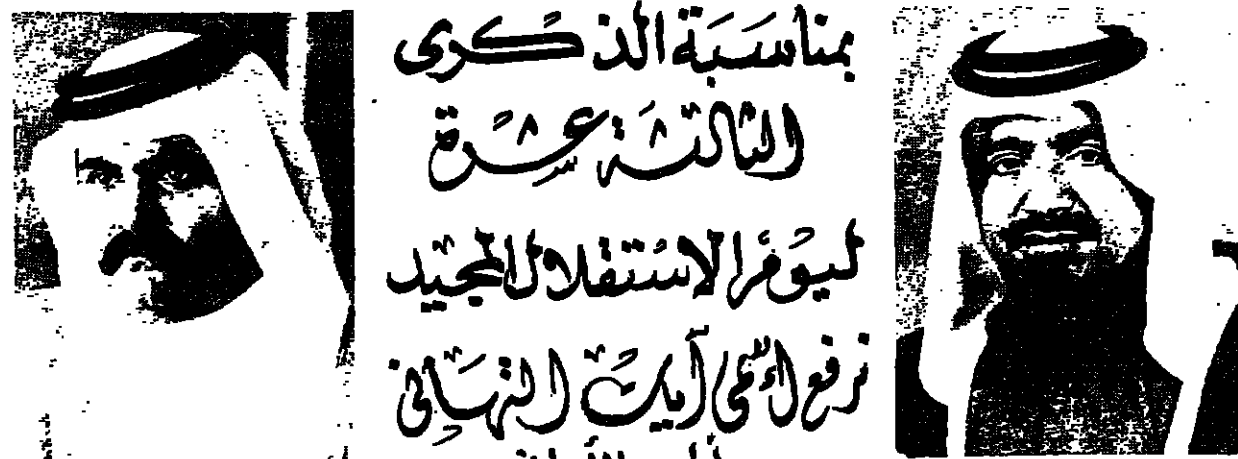 بمناسَبَة الذكرى
الثالثة عشرة
ليَوم الاستقلال المجيد
نرفع أسمى آيات التهاني